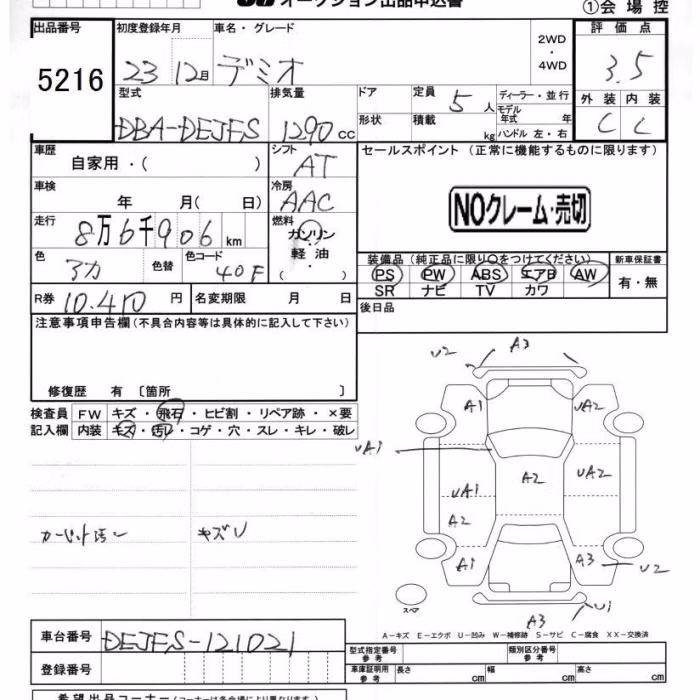 オークション出品申込書 ①会場控
出品番号 初度登録年月 車名・グレード 2WD 評価点
5216 23 12月 デミオ ・4WD 3.5
型式 排気量 ドア 定員 5人 ディーラー・並行 外装 内装
DBA-DEJFS 1290cc 形状 積載 kg モデル年式 年 C C
ハンドル 左・右
車歴 シフト セールスポイント (正常に機能するものに限ります)
自家用・( ) AT
車検 冷房
年 月( 日) AAC NOクレーム・売切
走行 燃料
8万6千906km ガソリン
軽油
( ・ )
色 色替 色コード 装備品(純正品に限り○をつけてください) 新車保証書
アカ 40F PS PW ABS エアB AW 有・無
SR ナビ TV カワ
R券 10.410円 名変期限 月 日 後日品
注意事項申告欄(不具合内容等は具体的に記入して下さい)
修復歴 有〔箇所 〕
検査員 FW キズ・飛石・ヒビ割・リペア跡・×要
記入欄 内装 キズ・汚レ・コゲ・穴・スレ・キレ・破レ
U2 A3
A1 UA2
UA1
UA1 A2 UA2
A2
A1 A3 U2
カーペット汚レ キズU
スペア
A3 U1
A-キズ E-エクボ U-凹み W-補修跡 S-サビ C-腐食 XX-交換済
車台番号 DEJFS-121021
型式指定番号 参考 類別区分番号 参考
登録番号 車庫証明用 参考 長さ cm 幅 cm 高さ cm
希望出品コーナー(コーナーは各会場により異なります)